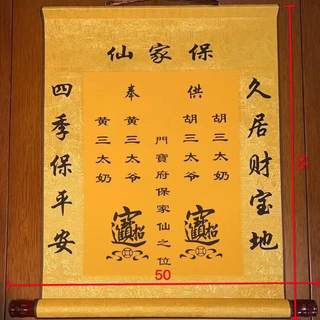 保家仙
久居财宝地
供奉
胡三太奶
胡三太爷
門寶府保家仙之位
黄三太爷
黄三太奶
招財進寶
招財進寶
四季保平安
50